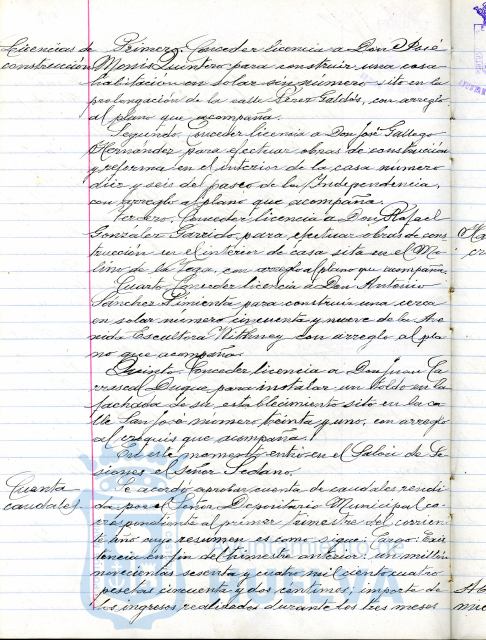 Licencias de construcción
Primero, Conceder licencia a Don José
Monís Quintero para construir una casa
habitación en solar sin número sito en la
prolongación de la calle Pérez Galdós, con arreglo
al plano que acompaña.
Segundo, Conceder licencia a Don José Gallego
Hernández para efectuar obras de construcción
y reforma en el interior de la casa número
diez y seis del paseo de la Independencia,
con arreglo al plano que acompaña.
Tercero, Conceder licencia a Don Rafael
González Garrido para efectuar obras de cons-
trucción en el interior de casa sita en el Mo-
lino de la Vega, con arreglo al plano que acompaña.
Cuarto, Conceder licencia a Don Antonio
Sánchez Pimienta para construir una cerca
en solar número cincuenta y nueve de la Ave-
nida Escultora Withney con arreglo al pla-
no que acompaña.
Quinto, Conceder licencia a Don Juan Ca-
rrascal Duque para instalar un toldo en la
fachada de su establecimiento sito en la ca-
lle San José número treinta y uno, con arreglo
al croquis que acompaña.
En este momento entró en el Salón de Se-
siones el Señor Sedano.
Cuenta caudales
Se acordó aprobar cuenta de caudales rendi-
da por el Señor Depositario Municipal co-
rrespondiente al primer trimestre del corrien-
te año cuyo resumen es como sigue: Cargo: Exis-
tencia en fin del trimestre anterior: un millón
novecientas sesenta y cuatro mil ciento cuatro
pesetas cincuenta y dos céntimos; importe de
los ingresos realizados durante los tres meses